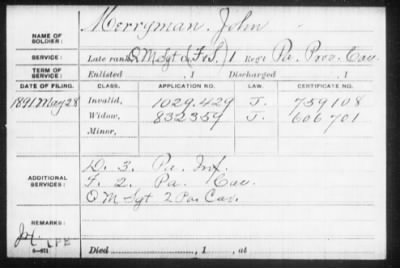 Merryman, John
NAME OF SOLDIER:
SERVICE: Late rank Q M Sgt (F&S) 1 Regt Pa. Prov. Cav.
TERM OF SERVICE: Enlisted , 1 Discharged , 1
DATE OF FILING. CLASS. APPLICATION NO. LAW. CERTIFICATE NO.
1891 May 28 Invalid, 1029.429 J. 759108
Widow, 832359 J. 606701
Minor,
D. 3. Pa. Inf.
ADDITIONAL SERVICES: F. 2. Pa. Cav.
Q M Sgt 2 Pa. Cav.
REMARKS:
Died , 1 , at